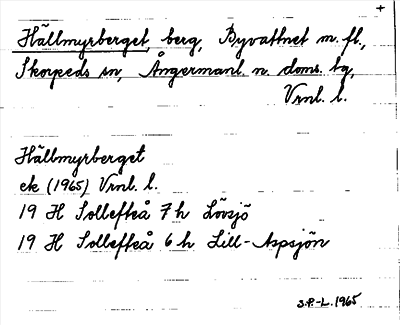 +
Hällmyrberget, berg, Byvattnet m. fl.,
Skorpeds sn, Ångermanl. n. doms. tg,
Vrnl. l.
Hällmyrberget
ek (1965) Vrnl. l.
19 H Sollefteå 7 h Lövsjö
19 H Sollefteå 6 h Lill-Aspsjön
S.P.-L. 1965